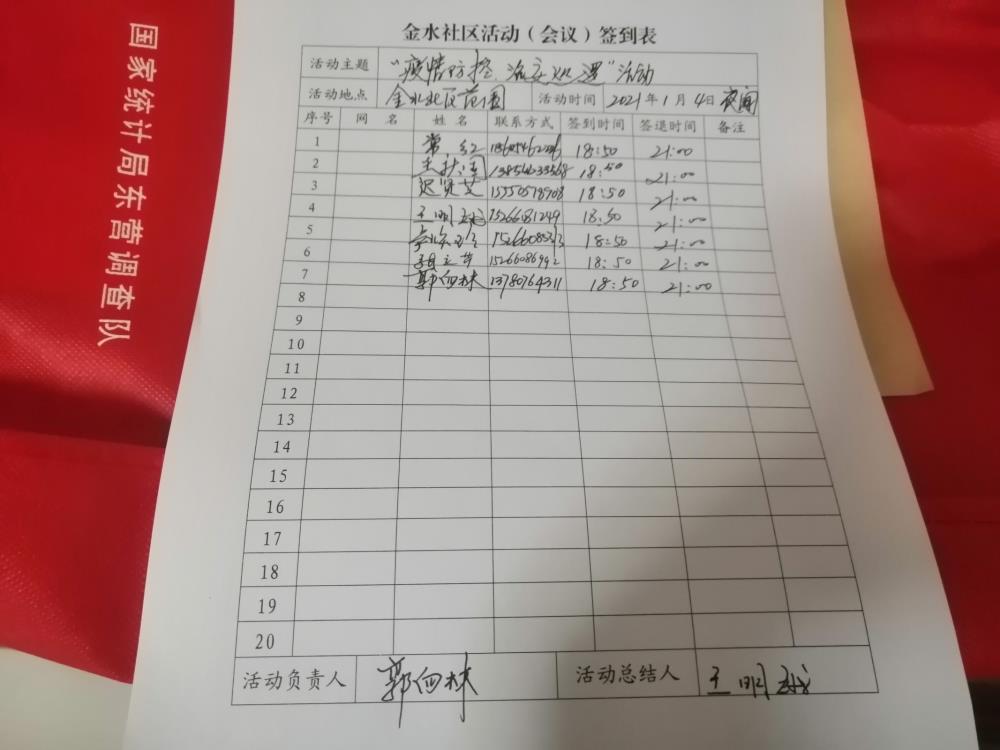 国家统计局东营调查队
金水社区活动（会议）签到表
活动主题 “疫情防控、治安巡逻”活动
活动地点 金水社区范围 活动时间 2021年1月4日夜间
序号 网名 姓名 联系方式 签到时间 签退时间 备注
1 常红 18:50 21:00
2 18:50 21:00
3 迟贤芝 18:50 21:00
4 王明 1526681249 18:50 21:00
5 18:50 21:00
6 15266086992 18:50 21:00
7 郭向林 13780764311 18:50 21:00
8
9
10
11
12
13
14
15
16
17
18
19
20
活动负责人 郭向林 活动总结人 王明